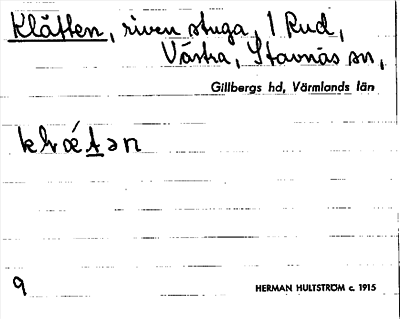 Klätten, riven stuga, 1 Rud,
Västra, Stavnäs sn,
Gillbergs hd, Värmlands län
9
HERMAN HULTSTRÖM c. 1915